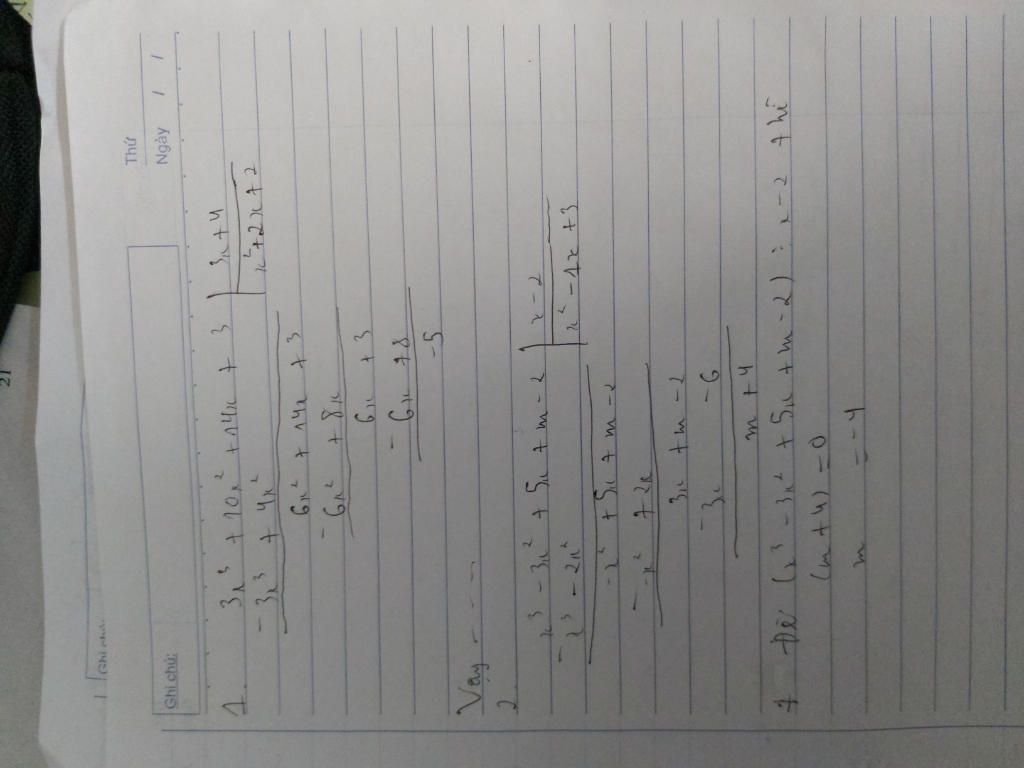 Thứ
Ngày / /
Ghi chú:
1. 3x³ + 10x² + 14x + 3 | 3x + 4
- 3x³ + 4x² | x² + 2x + 2
6x² + 14x + 3
- 6x² + 8x
6x + 3
- 6x + 8
-5
Vậy - - - -
2.
x³ - 3x² + 5x + m - 2 | x - 2
- x³ - 2x² | x² - 1x + 3
-x² + 5x + m - 2
- -x² + 2x
3x + m - 2
- 3x - 6
m + 4
Để (x³ - 3x² + 5x + m - 2) : x - 2 thì
(m + 4) = 0
m = -4
21